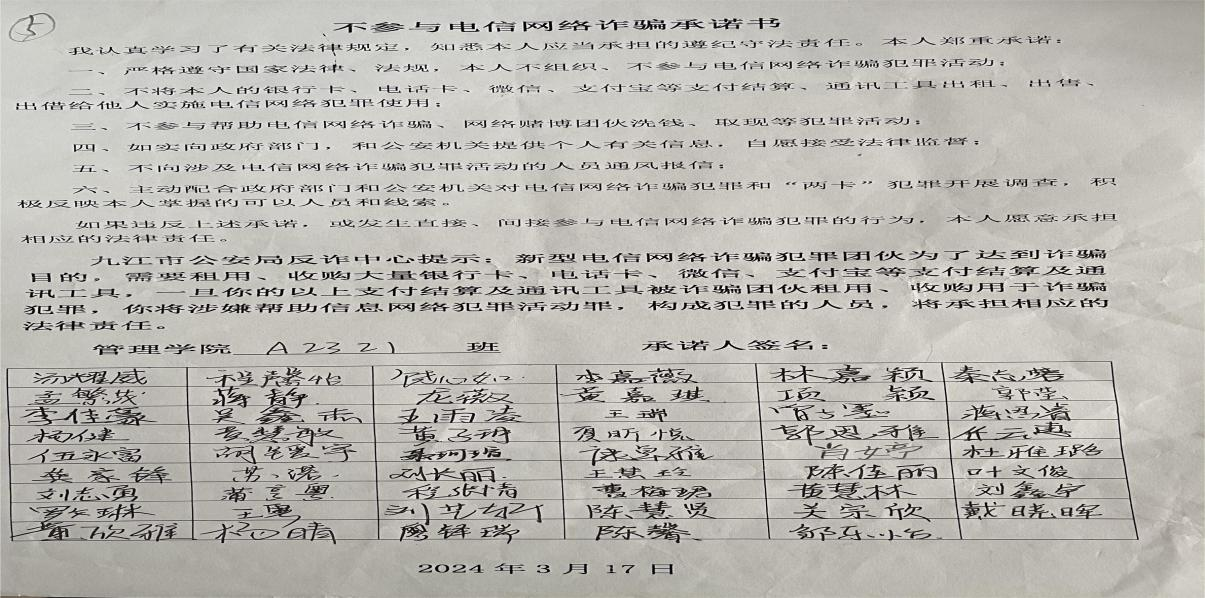 5
不参与电信网络诈骗承诺书
我认真学习了有关法律规定，知悉本人应当承担的遵纪守法责任。本人郑重承诺：
一、严格遵守国家法律、法规，本人不组织、不参与电信网络诈骗犯罪活动；
二、不将本人的银行卡、电话卡、微信、支付宝等支付结算、通讯工具出租、出售、
出借给他人实施电信网络犯罪使用；
三、不参与帮助电信网络诈骗、网络赌博团伙洗钱、取现等犯罪活动；
四、如实向政府部门，和公安机关提供个人有关信息，自愿接受法律监督；
五、不向涉及电信网络诈骗犯罪活动的人员通风报信；
六、主动配合政府部门和公安机关对电信网络诈骗犯罪和“两卡”犯罪开展调查，积
极反映本人掌握的可以人员和线索。
如果违反上述承诺，或发生直接、间接参与电信网络诈骗犯罪的行为，本人愿意承担
相应的法律责任。
九江市公安局反诈中心提示：新型电信网络诈骗犯罪团伙为了达到诈骗
目的，需要租用、收购大量银行卡、电话卡、微信、支付宝等支付结算及通
讯工具，一旦你的以上支付结算及通讯工具被诈骗团伙租用、收购用于诈骗
犯罪，你将涉嫌帮助信息网络犯罪活动罪，构成犯罪的人员，将承担相应的
法律责任。
管理学院 A2321 班 承诺人签名：
汤耀威 程馨怡 李嘉薇 林嘉颖
蒋静 龙薇 黄嘉琪 项颖
李佳豪 吴鑫杰 王雨凌 王娜
杨健 袁慧敏 夏昕悦 郭思雅 任云惠
伍永富 肖女婷 杜雅璐
樊家锋 苏湛 刘长丽 王慧玲 陈佳丽 叶文俊
刘志勇 程张倩 曹梅珺 黄慧林 刘鑫宇
王勇 陈慧贤 关宗欣 戴晓晖
杨晴 廖锋瑞 陈馨 邹乐怡
2024年3月17日